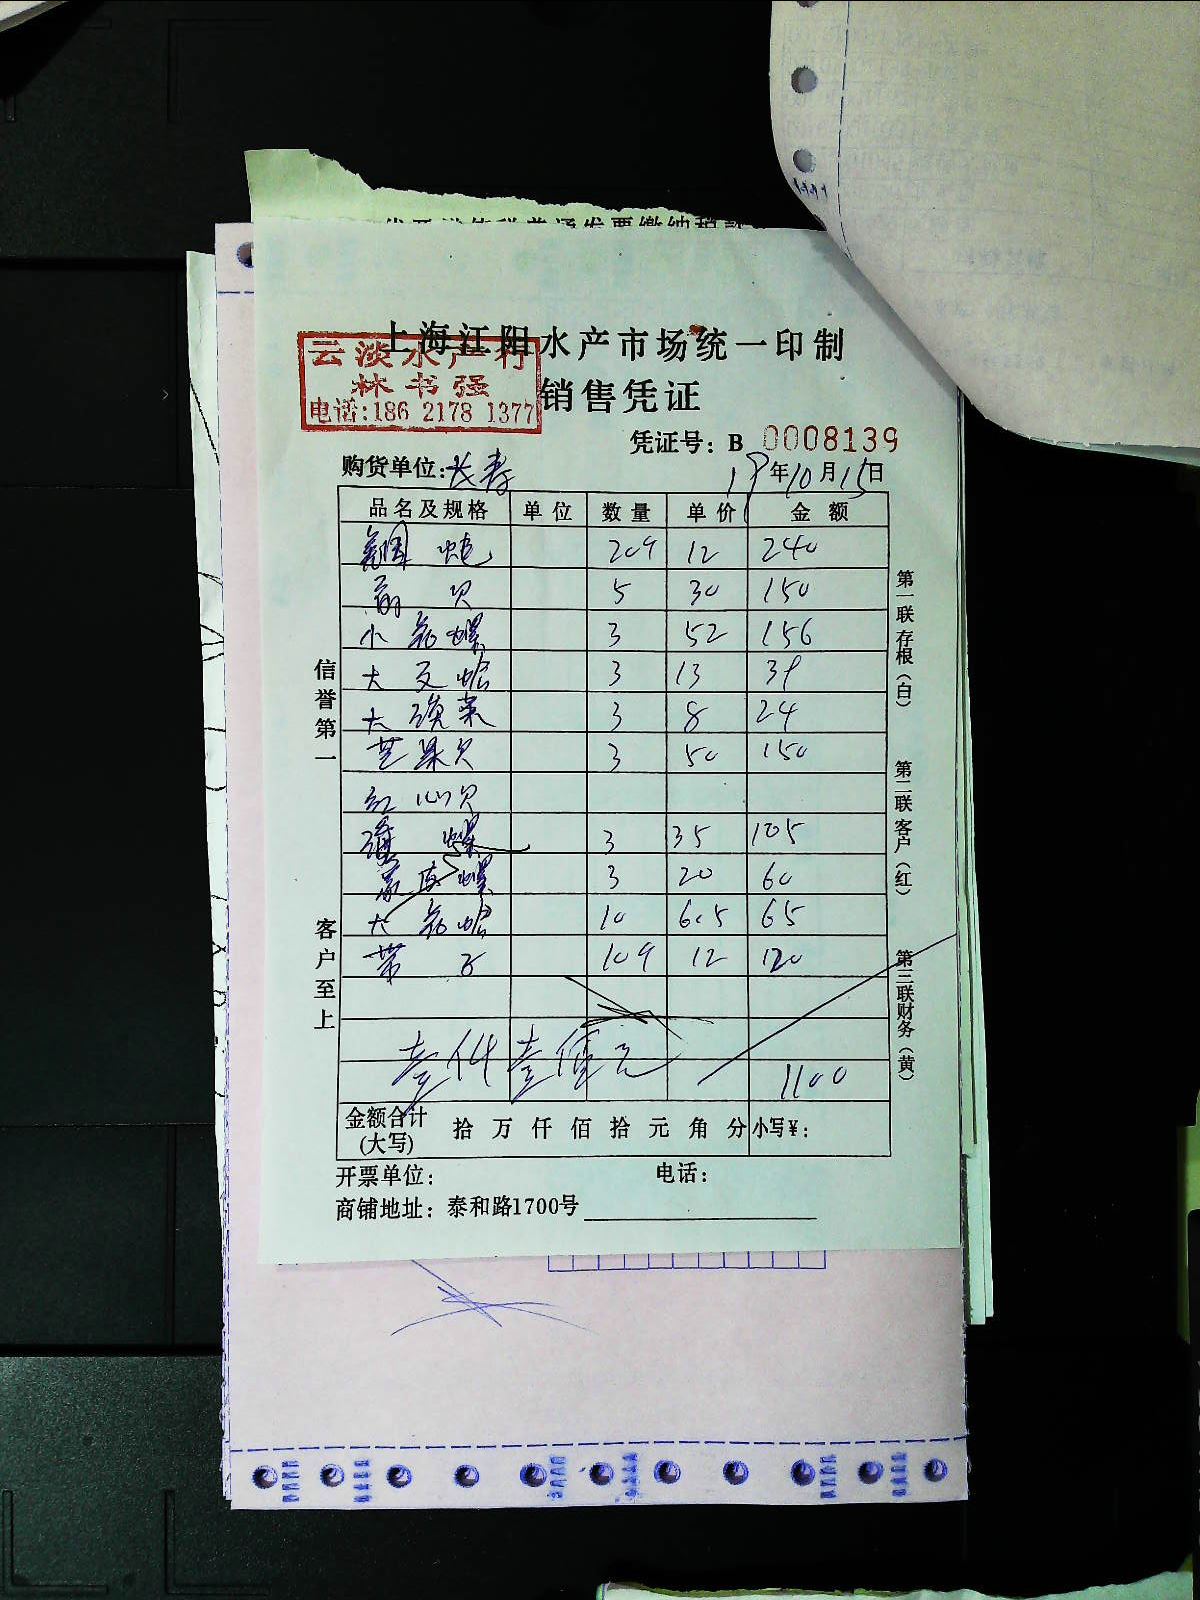 上海江阳水产市场统一印制
云淡水产行
林书强
电话:186 2178 1377
销售凭证
凭证号: B 0008139
购货单位:长寿 19年10月15日
品名及规格 单位 数量 单价 金额
209 12 240
贝 5 30 150
小花螺 3 52 156
大文蛤 3 13 39
大 3 8 24
芒果贝 3 50 150
红心贝
螺 3 35 105
螺 3 20 60
大花蛤 10 6.5 65
带子 109 12 120
壹仟壹佰元
1100
金额合计(大写) 拾 万 仟 佰 拾 元 角 分 小写¥:
开票单位: 电话:
商铺地址: 泰和路1700号
信誉第一
客户至上
第一联存根(白)
第二联客户(红)
第三联财务(黄)